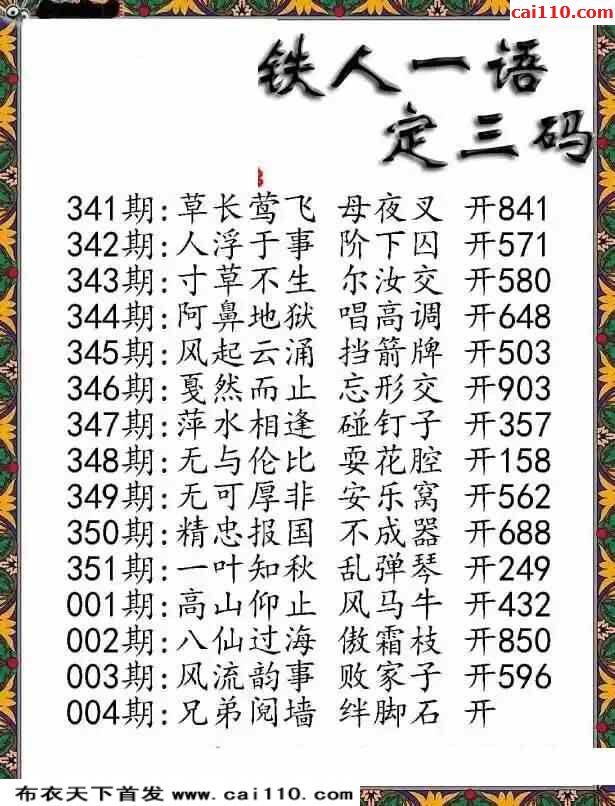 cai110.com
铁人一语
定三码
341期:草长莺飞 母夜叉 开841
342期:人浮于事 阶下囚 开571
343期:寸草不生 尔汝交 开580
344期:阿鼻地狱 唱高调 开648
345期:风起云涌 挡箭牌 开503
346期:戛然而止 忘形交 开903
347期:萍水相逢 碰钉子 开357
348期:无与伦比 耍花腔 开158
349期:无可厚非 安乐窝 开562
350期:精忠报国 不成器 开688
351期:一叶知秋 乱弹琴 开249
001期:高山仰止 风马牛 开432
002期:八仙过海 傲霜枝 开850
003期:风流韵事 败家子 开596
004期:兄弟阋墙 绊脚石 开
布衣天下首发 www.cai110.com